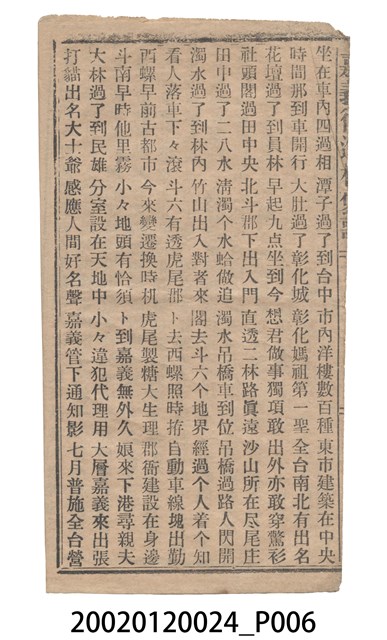 坐在車內四過相 潭子過了到台中 市內洋樓數百種 東市建築在中央
時間那到車開行 大肚過了彰化城 彰化媽祖第一聖 全台南北有出名
花壇過了到員林 早起九点坐到今 想君做事獨項敢 出外亦敢穿驚衫
社頭閣過田中央 北斗郡下出入門 直透二林路眞遠 沙山所在尽尾庄
田中過了二八水 清濁个水蛤做追 濁水吊橋車到位 吊橋過路人閃開
濁水過了到林內 竹山出入對者來 閣去斗六个地界 經過个人着个知
看人落車下々滾 斗六有透虎尾郡 卜去西螺照時拵 自動車線塊出勤
西螺早前古都市 今來變遷換時机 虎尾製糖大生理 郡衙建設在身邊
斗南早時他里霧 小々地頭有恰須 卜到嘉義無外久 娘來下港尋親夫
大林過了到民雄 分室設在天地中 小々違犯代理用 大層嘉義來出張
打貓出名大士爺 感應人間好名聲 嘉義管下通知影 七月普施全台營
20020120024_P006